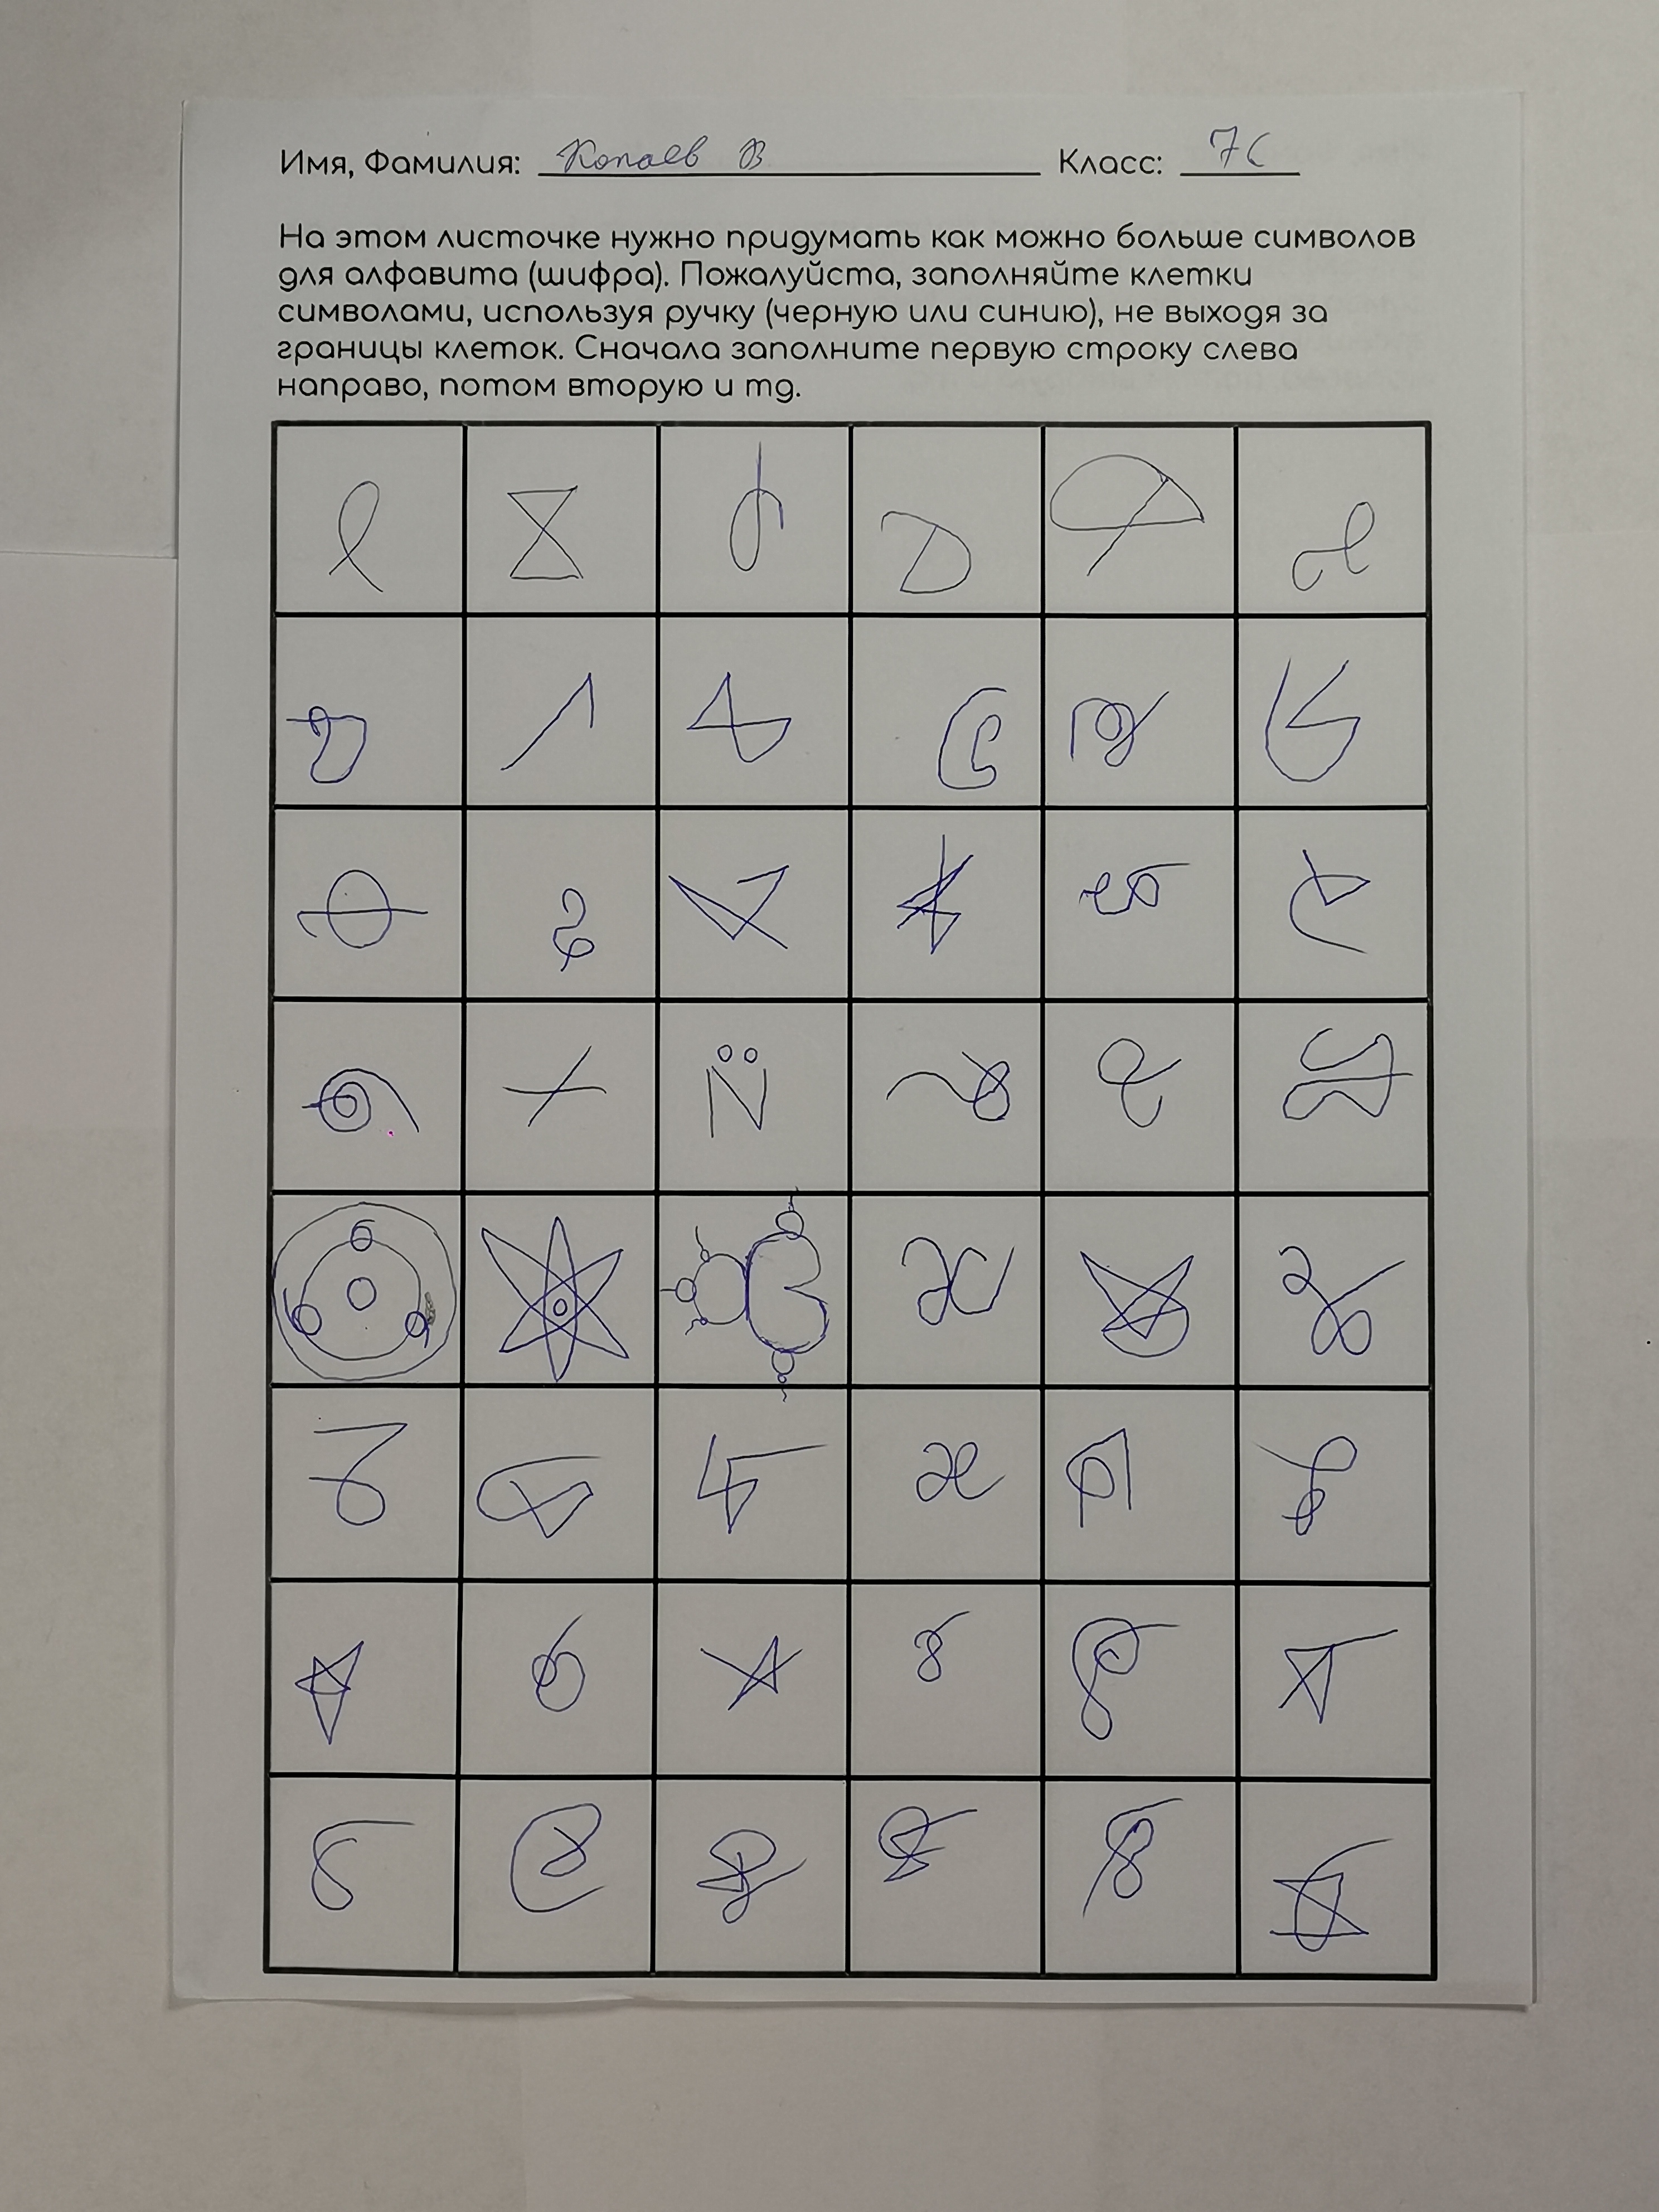 Имя, Фамилия: Копаев В Класс: 7С
На этом листочке нужно придумать как можно больше символов
для алфавита (шифра). Пожалуйста, заполняйте клетки
символами, используя ручку (черную или синию), не выходя за
границы клеток. Сначала заполните первую строку слева
направо, потом вторую и тд.